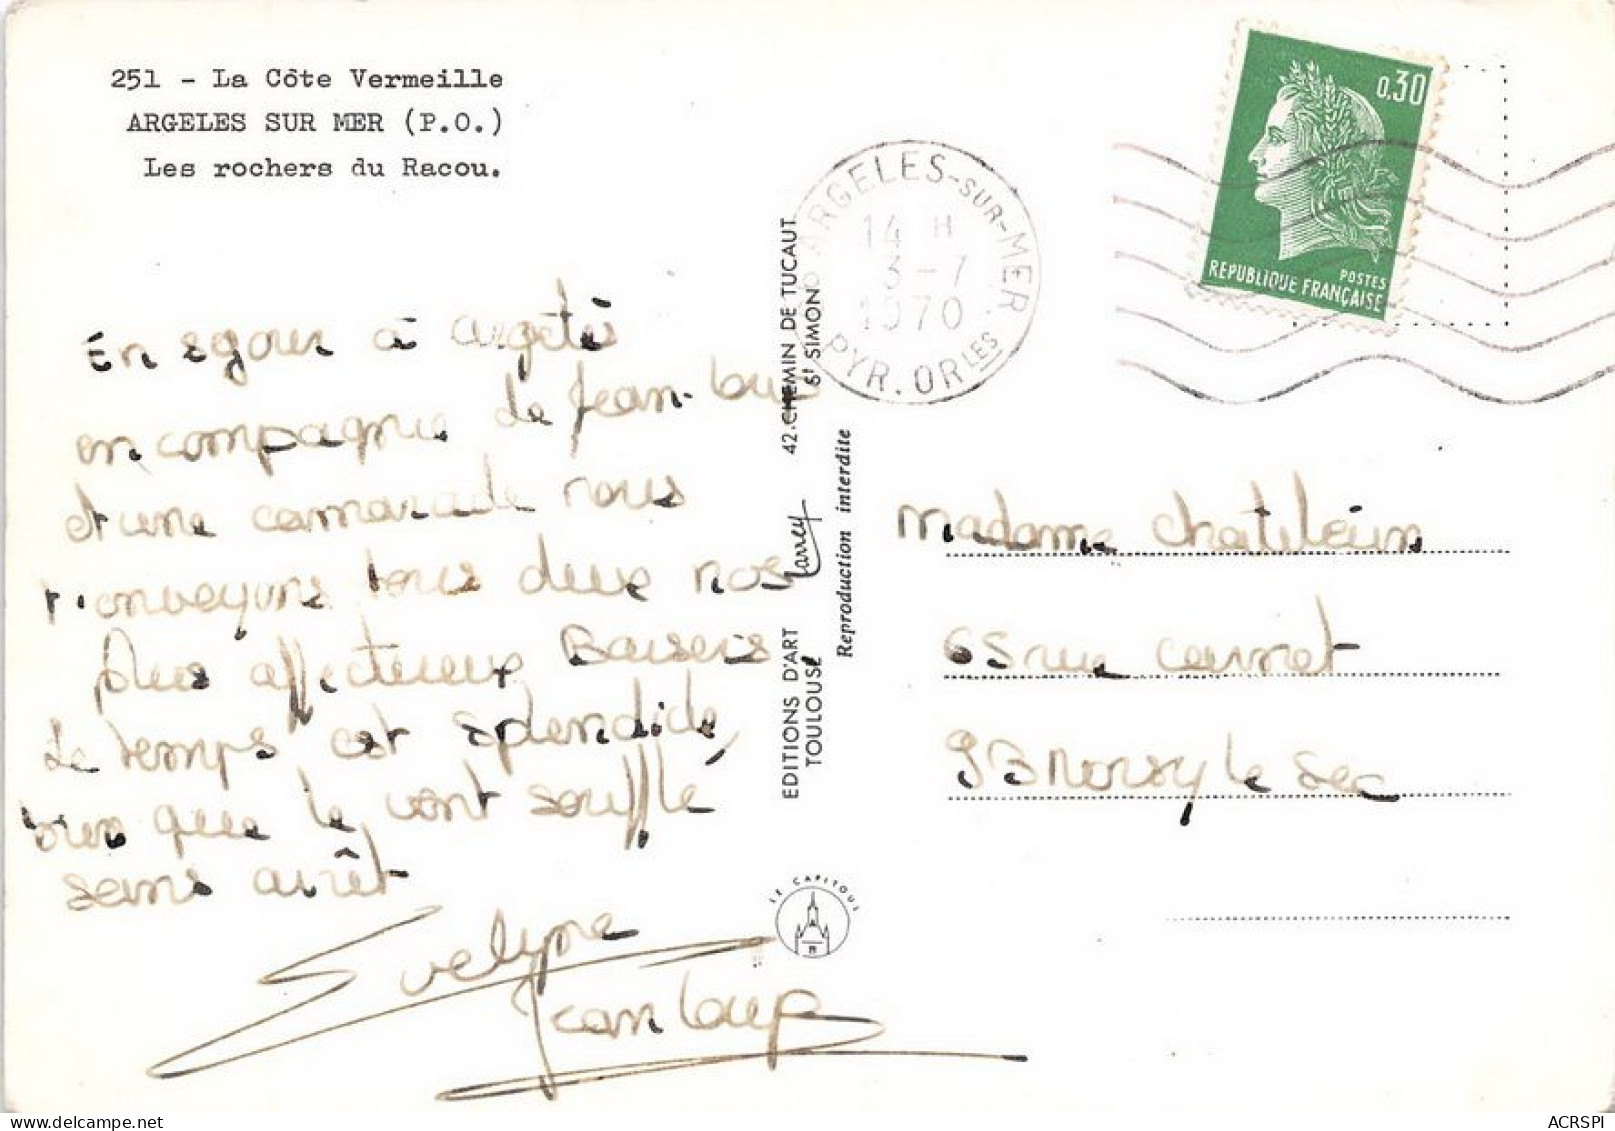 251 - La Côte Vermeille
ARGELES SUR MER (P.O.)
Les rochers du Racou.
0,30
POSTES
REPUBLIQUE FRANÇAISE
ARGELES-SUR-MER
14 H
3-7
1970
PYR. ORLES
En sejour à Argelès
en compagnie de Jean-Loup
et une camarade nous
t'envoyons tous deux nos
plus affectueux Baisers
Le temps est splendide,
bien que le vent souffle
sans arrêt
Evelyne
Jean Loup
EDITIONS D'ART Larrey 42.CHEMIN DE TUCAUT
TOULOUSE St SIMON
Reproduction interdite
LE CAPITOUL
Madame
65 rue carnot
93 Noisy le Sec
ACRSPI